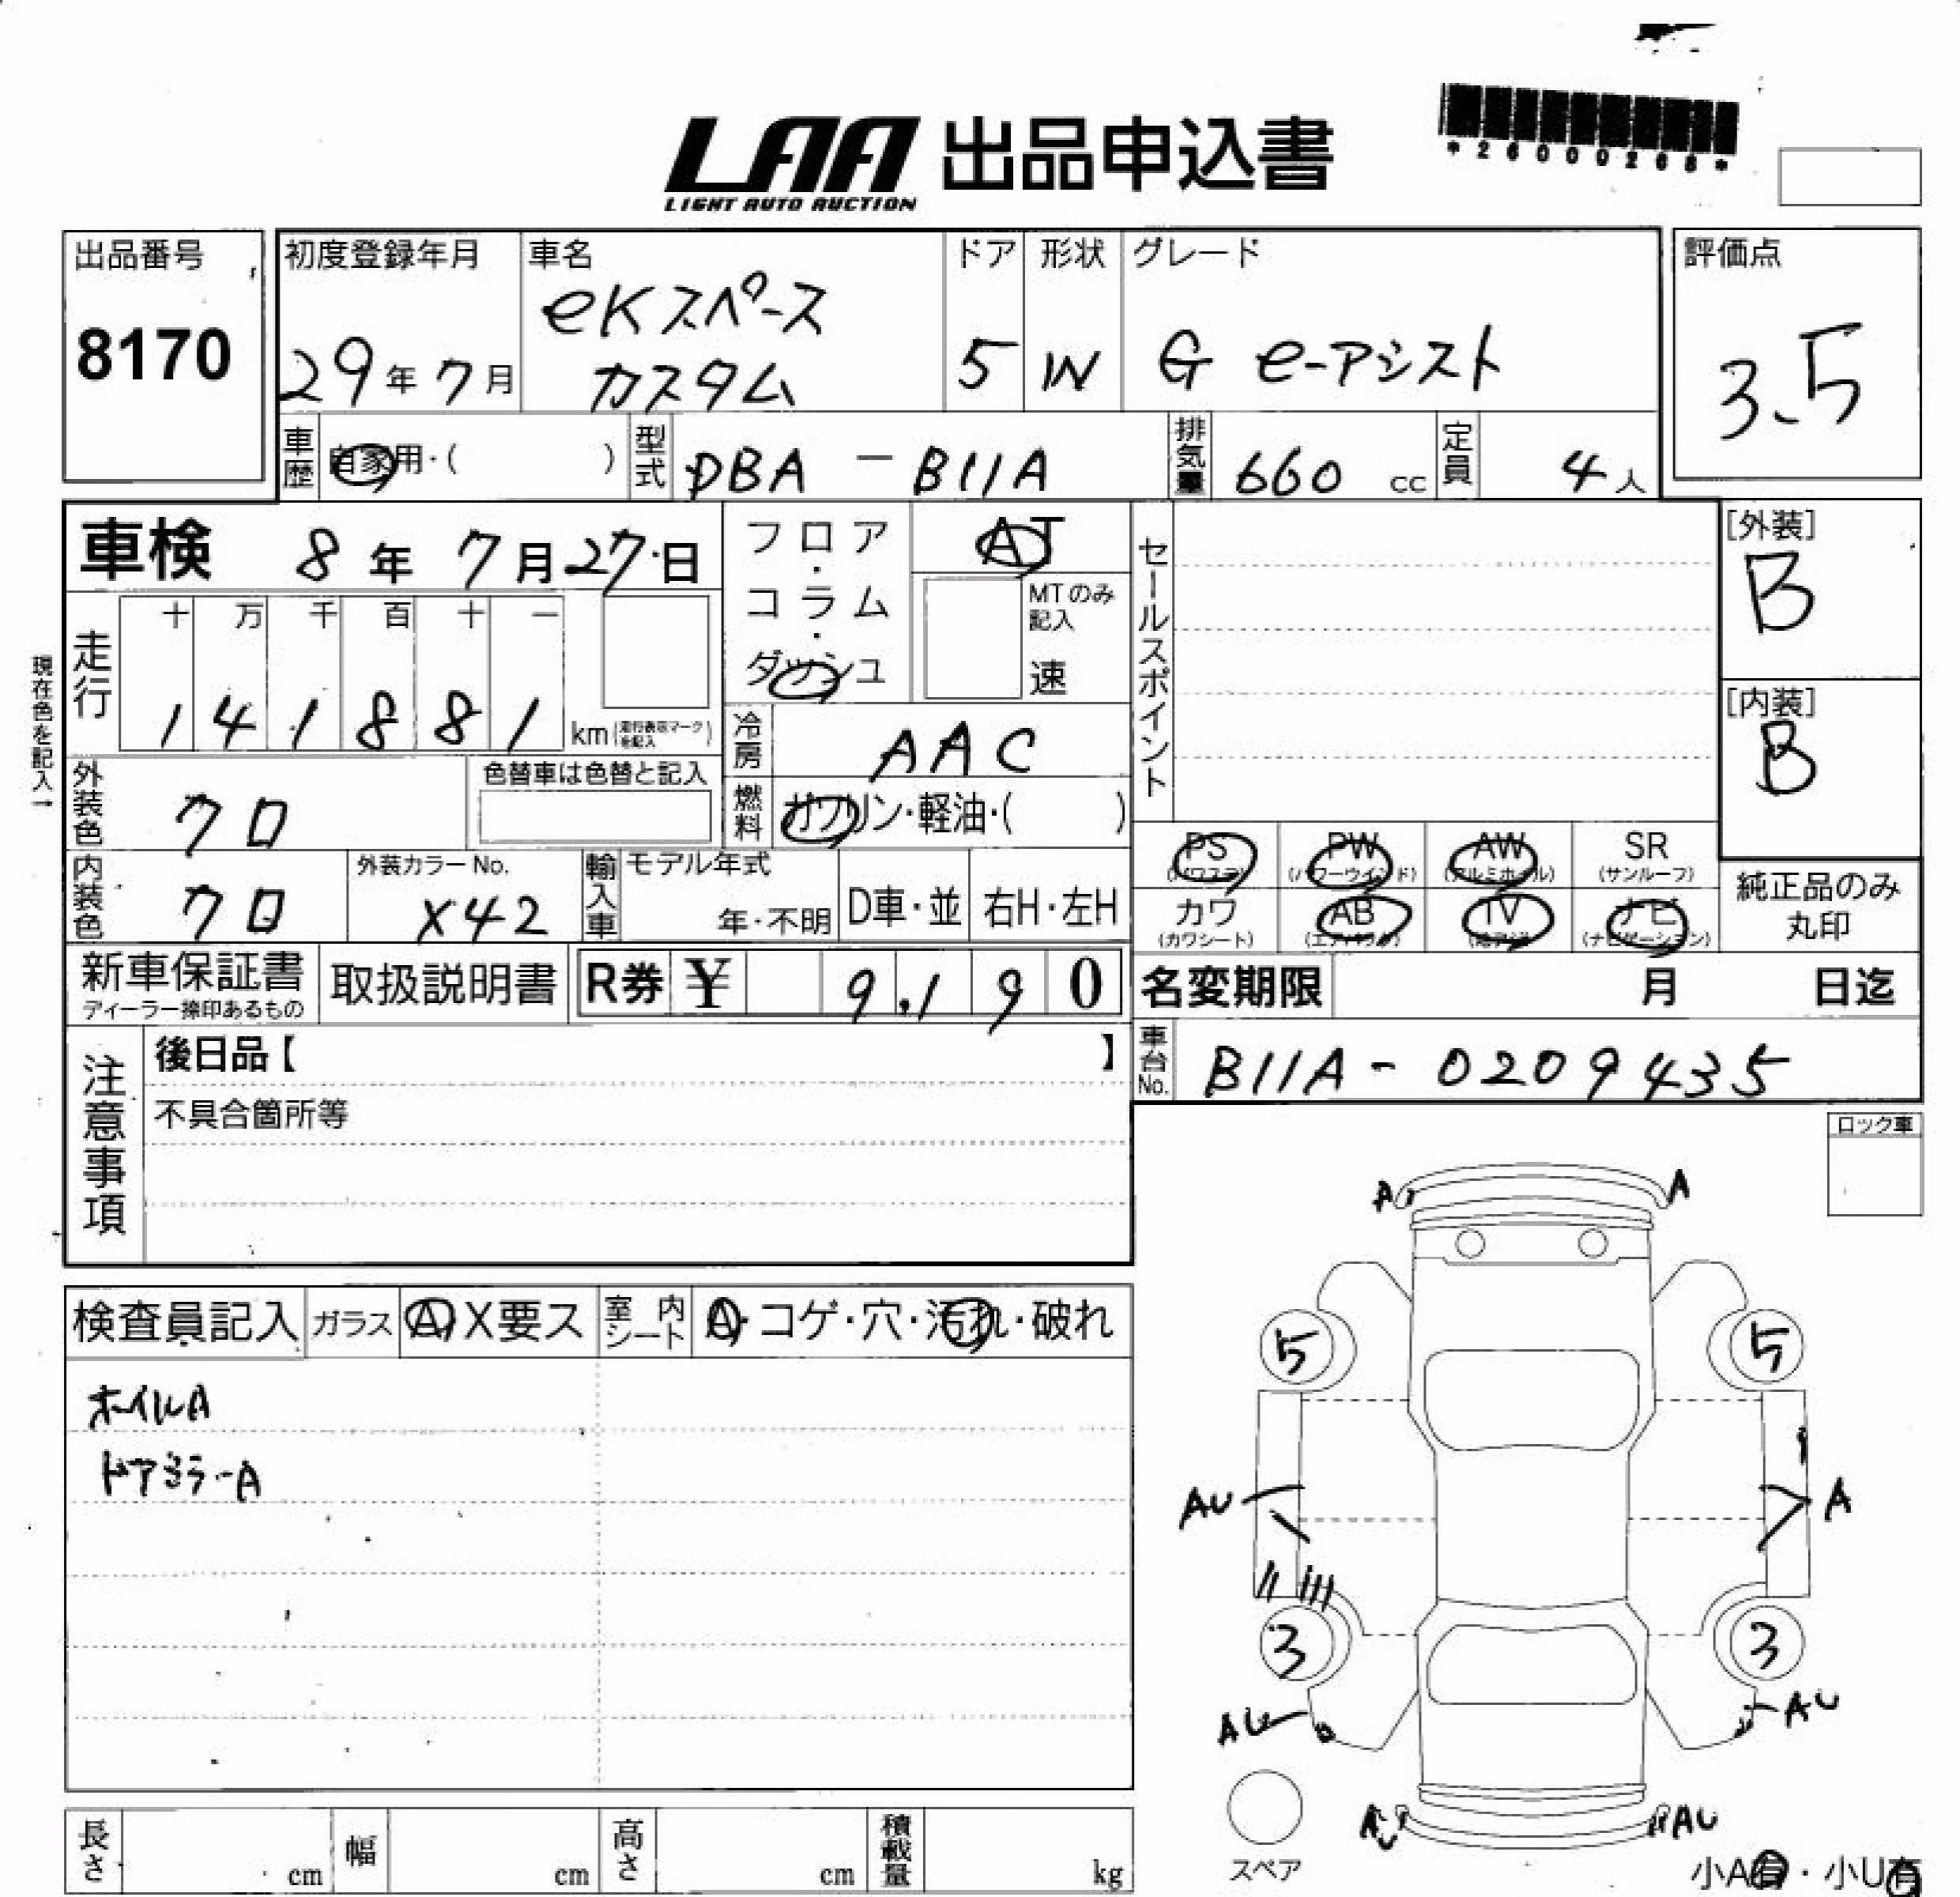 *26000268*
LAA 出品申込書
LIGHT AUTO AUCTION
出品番号
8170
初度登録年月
29年7月
車名
eKスペース
カスタム
ドア
5
形状
W
グレード
G e-アシスト
評価点
3.5
車歴
自家用・( )
型式
DBA-B11A
排気量
660 cc
定員
4人
車検 8年7月27日
フロア・コラム・ダッシュ
AT
MTのみ記入
速
セールスポイント
[外装]
B
[内装]
B
現在色を記入→
走行
十 万 千 百 十 一
1 4 1 8 8 1 km(走行表示マークを記入)
冷房
AAC
燃料
ガソリン・軽油・( )
外装色
クロ
色替車は色替と記入
内装色
クロ
外装カラーNo.
X42
輸入車
モデル年式
年・不明
D車・並
右H・左H
PS PW AW SR
(パワステ) (パワーウインド) (アルミホイル) (サンルーフ)
カワ AB TV ナビ
(カワシート) (エアバック) (ナビゲーション)
純正品のみ
丸印
新車保証書
ディーラー捺印あるもの
取扱説明書
R券 ¥ 9,190
名変期限 月 日迄
車台No.
B11A-0209435
注意事項
後日品【 】
不具合箇所等
ロック車
検査員記入
ガラス
A X要ス
室内シート
A・コゲ・穴・汚れ・破れ
ホイルA
ドアミラーA
A A
5 5
AU A
3 3
AU AU
AU AU
スペア
小A有・小U有
長さ cm
幅 cm
高さ cm
積載量 kg